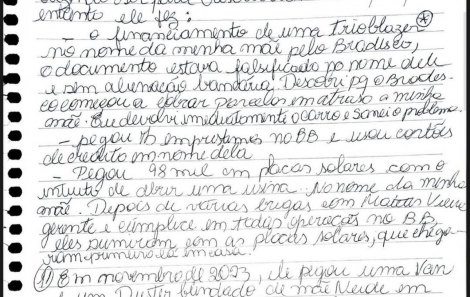 entanto ele fez:
- o financiamento de uma trioblazer
no nome da minha mãe pelo Bradesco,
o documento estava falsificado no nome dele
e sem alienação bancária. Descobri pq o Brades-
co começou a cobrar parcelas em atraso a minha
mãe. Eu devolvi imediatamente o carro e sanei o problema.
- pegou 16 emprestimos no BB e usou cartões
de credito em nome dela
- Pegou 98 mil em placas solares com o
intuito de abrir uma usina. No nome da minha
mãe. Depois de várias brigas com
gerente e cúmplice em todas operações no BB,
eles sumiram com as placas solares, que chega-
ram primeiro lá em casa.
① Em novembro de 2023, ele pegou uma Van
e um Duster blindado de mãe Neide em